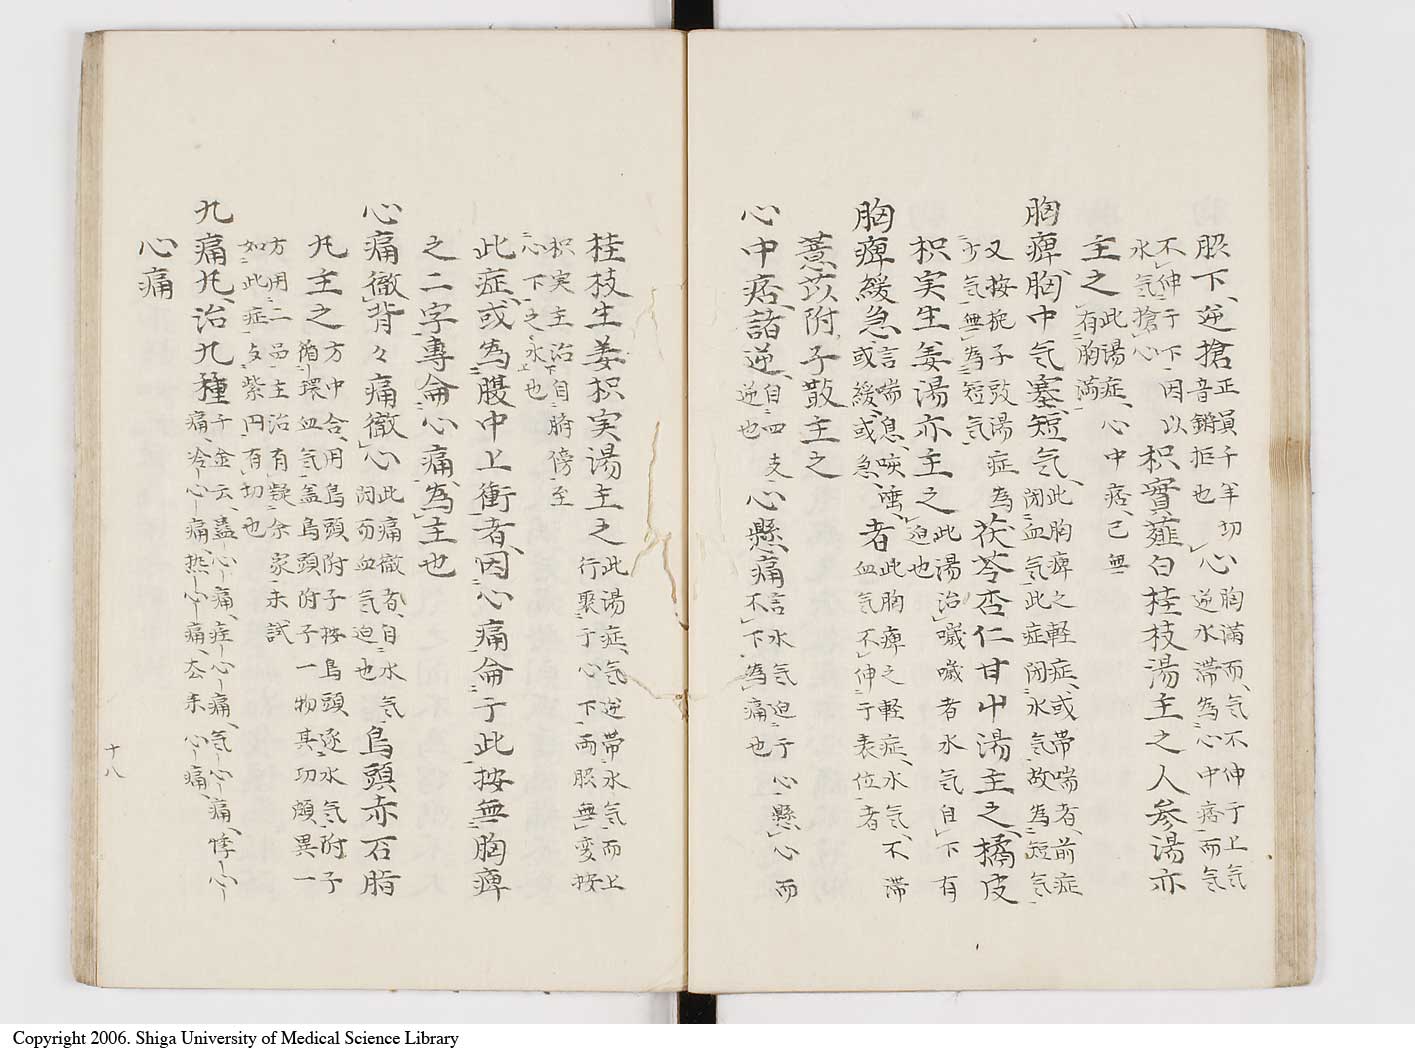 脇下、逆搶 正員千羊切 音鏘拒也 心 胸滿而、気不伸于上気 逆水滞為心中痞而気
不伸于下、因以 水気搶心 枳實薤白桂枝湯主之人参湯亦
主之 此湯症、心中痞、已無 有胸満
胸痺、胸中气塞、短气、 此胸痺之軽症、或帯喘者、前症 閉血気此症閉水気故為短気
又按梔子豉湯症為 少気無為短気 茯苓杏仁甘屮湯主之、橘皮
枳実生姜湯亦主之 此湯治噦噦者水気自下有 迫也
胸痺緩急、 言喘息、咳唾 或緩、或急、 者 此胸痺之軽症、水気、不滞 血气不伸于表位者
薏苡附子散主之
心中痞、諸逆、 自四支 逆也 心懸痛 言水気迫于心懸心而 不下為痛也
桂枝生姜枳実湯主之 此湯症、気逆帯水気而上 行聚于心下、而脇無変按
枳実主治自脇傍至 心下之水也
此症、或為腹中上衝者、因心痛侖于此、按無胸痺
之二字、專侖心痛、為主也
心痛徹背、々痛徹心 此痛徹者、自水気 閉而血気迫也 烏頭赤石脂
丸主之 方中含用烏頭附子按烏頭逐水気附子 循環血気蓋烏頭附子一物其功頗異一
方用二品主治有疑余家未試 如此症与紫円有切也
九痛丸、治九種 千金云、蟲ー心ー痛、疰ー心ー痛、気ー心ー痛、悸ー心ー 痛、冷ー心ー痛、热ー心ー痛、去来心ー痛、
心痛
十八
Copyright 2006. Shiga University of Medical Science Library